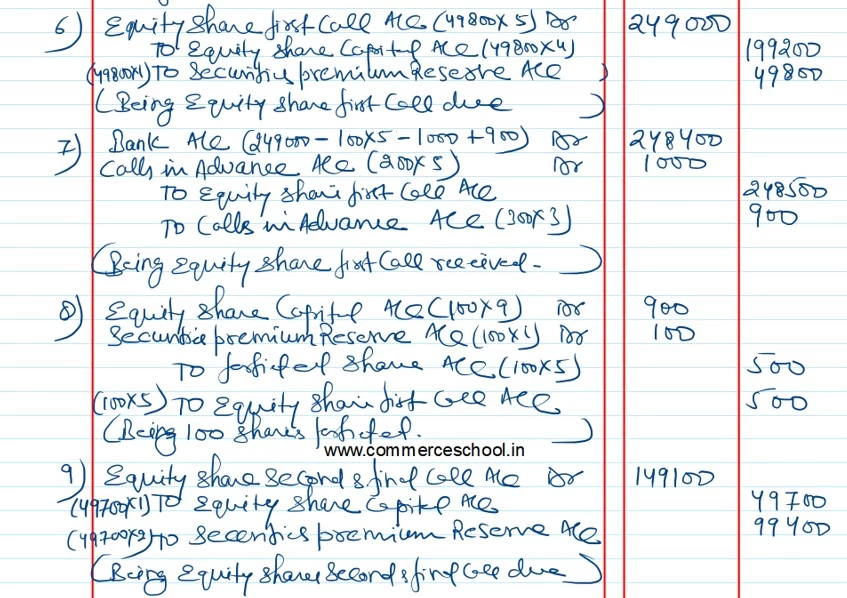 6) Equity Share first Call A/c (49800×5) Dr 249000
To Equity Share Capital A/c (49800×4) 199200
(49800×1) To Securities premium Reserve A/c 49800
(Being Equity Share first Call due)
7) Bank A/c (249000 - 100×5 - 1000 + 900) Dr 248400
Calls in Advance A/c (200×5) Dr 1000
To Equity Share first Call A/c 248500
To Calls in Advance A/c (300×3) 900
(Being Equity Share first Call received.)
8) Equity Share Capital A/c (100×9) Dr 900
Securities premium Reserve A/c (100×1) Dr 100
To forfieted Share A/c (100×5) 500
(100×5) To Equity Share first Call A/c 500
(Being 100 Shares forfieted.)
www.commerceschool.in
9) Equity Share Second & final Call A/c Dr 149100
(49700×1) To Equity Share Capital A/c 49700
(49700×2) To Securities premium Reserve A/c 99400
(Being Equity Share Second & final Call due)